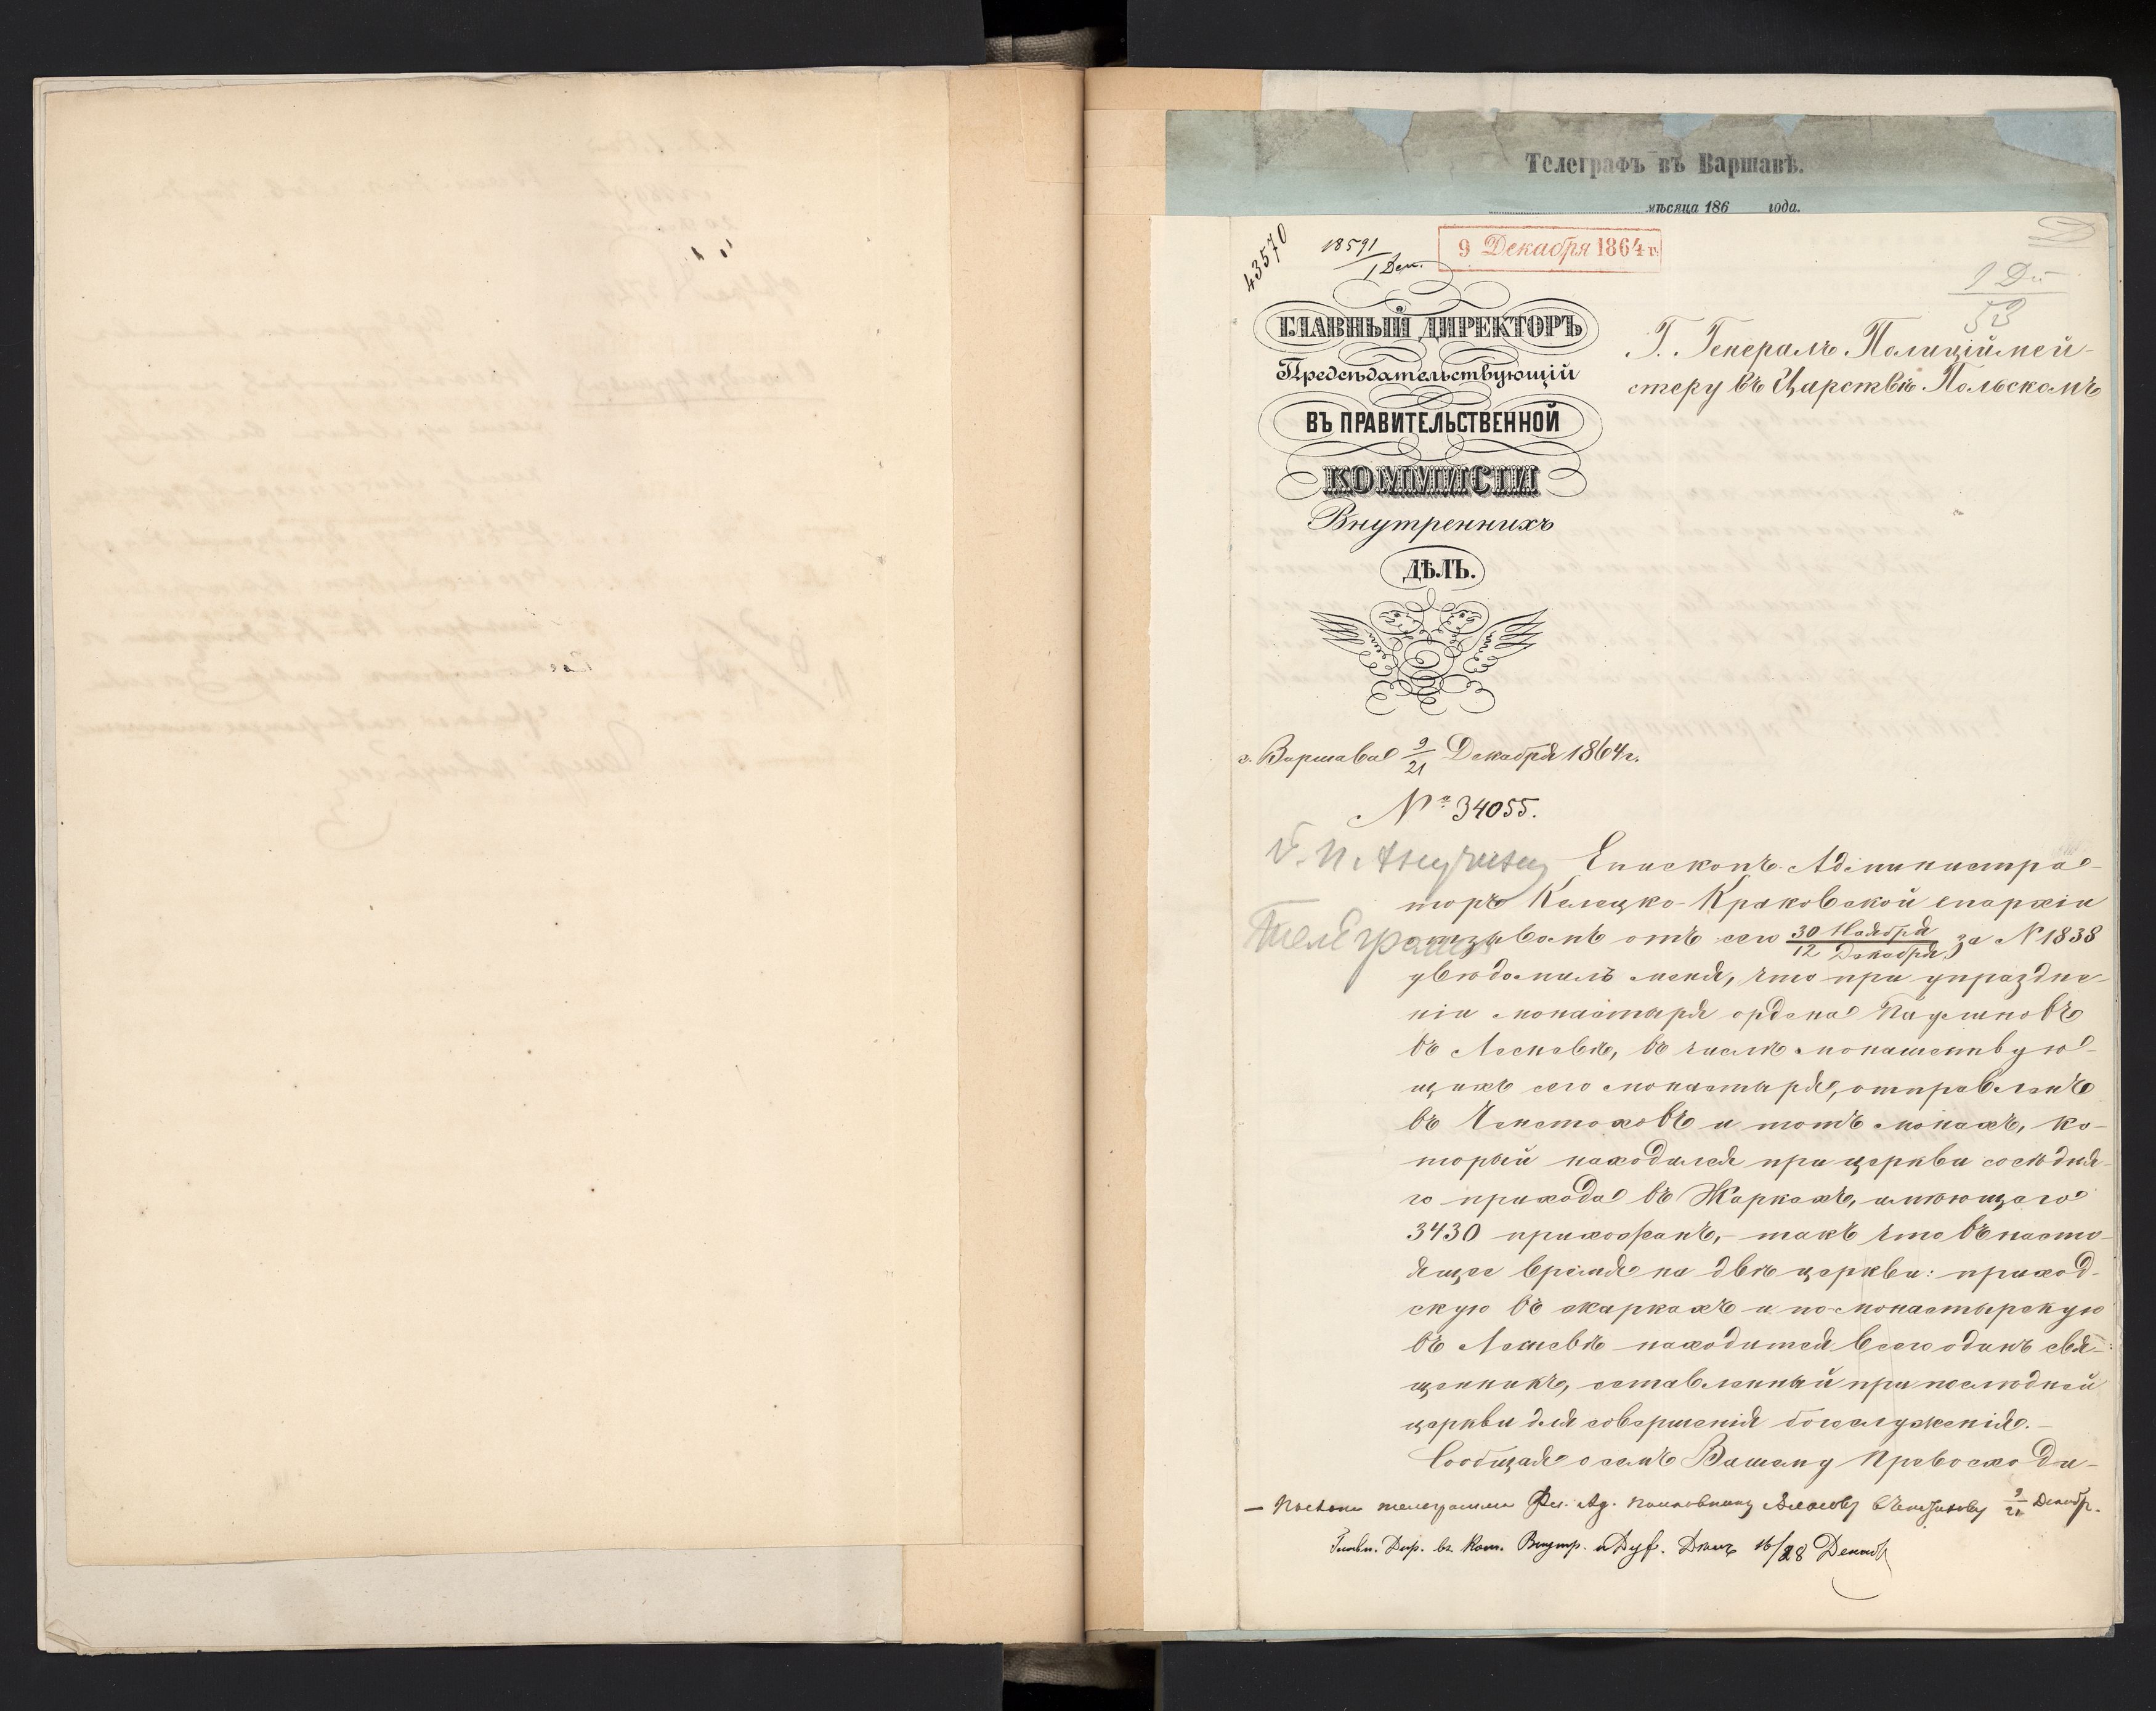 Телеграфъ въ Варшавѣ.
мѣсяца 186 года.
43570
18591
1 Дек.
9 Декабря 1864 г.
1 Д
53
ГЛАВНЫЙ ДИРЕКТОРЪ
Предсѣдательствующій
ВЪ ПРАВИТЕЛЬСТВЕННОЙ
КОММИСІИ
Внутреннихъ
ДѢЛЪ.
Г. Генералъ Полиціймей-
стеру въ Царствѣ Польскомъ
г. Варшава 9/21 Декабря 1864 г.
№ 34055.
Епископъ Администра-
торъ Келецко-Краковской епархіи
отзывомъ отъ сего 30 Ноября/12 Декабря за № 1838
увѣдомилъ меня, что при упраздне-
ніи монастыря ордена Паулиновъ
въ Лесневѣ, въ числѣ монашествую-
щихъ сего монастыря, отправленъ
въ Ченстоховъ и тотъ монахъ, ко-
торый находился при церкви сосѣдня-
го прихода въ Жаркахъ, имѣющаго
3430 прихожанъ, - такъ что въ насто-
ящее время на двѣ церкви: приход-
скую въ Жаркахъ и по-монастырскую
въ Лесневѣ находится всего одинъ свя-
щенникъ, оставленный при послѣдней
церкви для совершенія богослуженія. -
Сообщая о семъ Вашему Превосходи-
Телеграмма
- Послана телеграмма Фл. Ад. Полковнику въ Ченстохову 9/21 Декабр.
Главн. Дир. въ Ком. Внутр. и Дух. Дѣлъ 16/28 Декаб